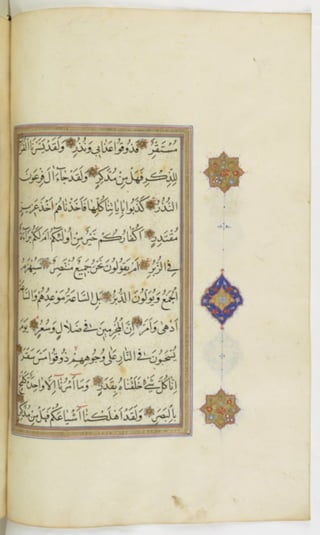 مُسْتَقِرٌّ فَذُوقُوا عَذَابِي وَنُذُرِ وَلَقَدْ يَسَّرْنَا الْقُرْآنَ
لِلذِّكْرِ فَهَلْ مِنْ مُدَّكِرٍ وَلَقَدْ جَاءَ آلَ فِرْعَوْنَ
النُّذُرُ كَذَّبُوا بِآيَاتِنَا كُلِّهَا فَأَخَذْنَاهُمْ أَخْذَ عَزِيزٍ
مُقْتَدِرٍ أَكُفَّارُكُمْ خَيْرٌ مِنْ أُولَئِكُمْ أَمْ لَكُمْ بَرَاءَةٌ
فِي الزُّبُرِ أَمْ يَقُولُونَ نَحْنُ جَمِيعٌ مُنْتَصِرٌ سَيُهْزَمُ
الْجَمْعُ وَيُوَلُّونَ الدُّبُرَ بَلِ السَّاعَةُ مَوْعِدُهُمْ وَالسَّاعَةُ
أَدْهَى وَأَمَرُّ إِنَّ الْمُجْرِمِينَ فِي ضَلَالٍ وَسُعُرٍ يَوْمَ
يُسْحَبُونَ فِي النَّارِ عَلَى وُجُوهِهِمْ ذُوقُوا مَسَّ سَقَرَ
إِنَّا كُلَّ شَيْءٍ خَلَقْنَاهُ بِقَدَرٍ وَمَا أَمْرُنَا إِلَّا وَاحِدَةٌ كَلَمْحٍ
بِالْبَصَرِ وَلَقَدْ أَهْلَكْنَا أَشْيَاعَكُمْ فَهَلْ مِنْ مُدَّكِرٍ